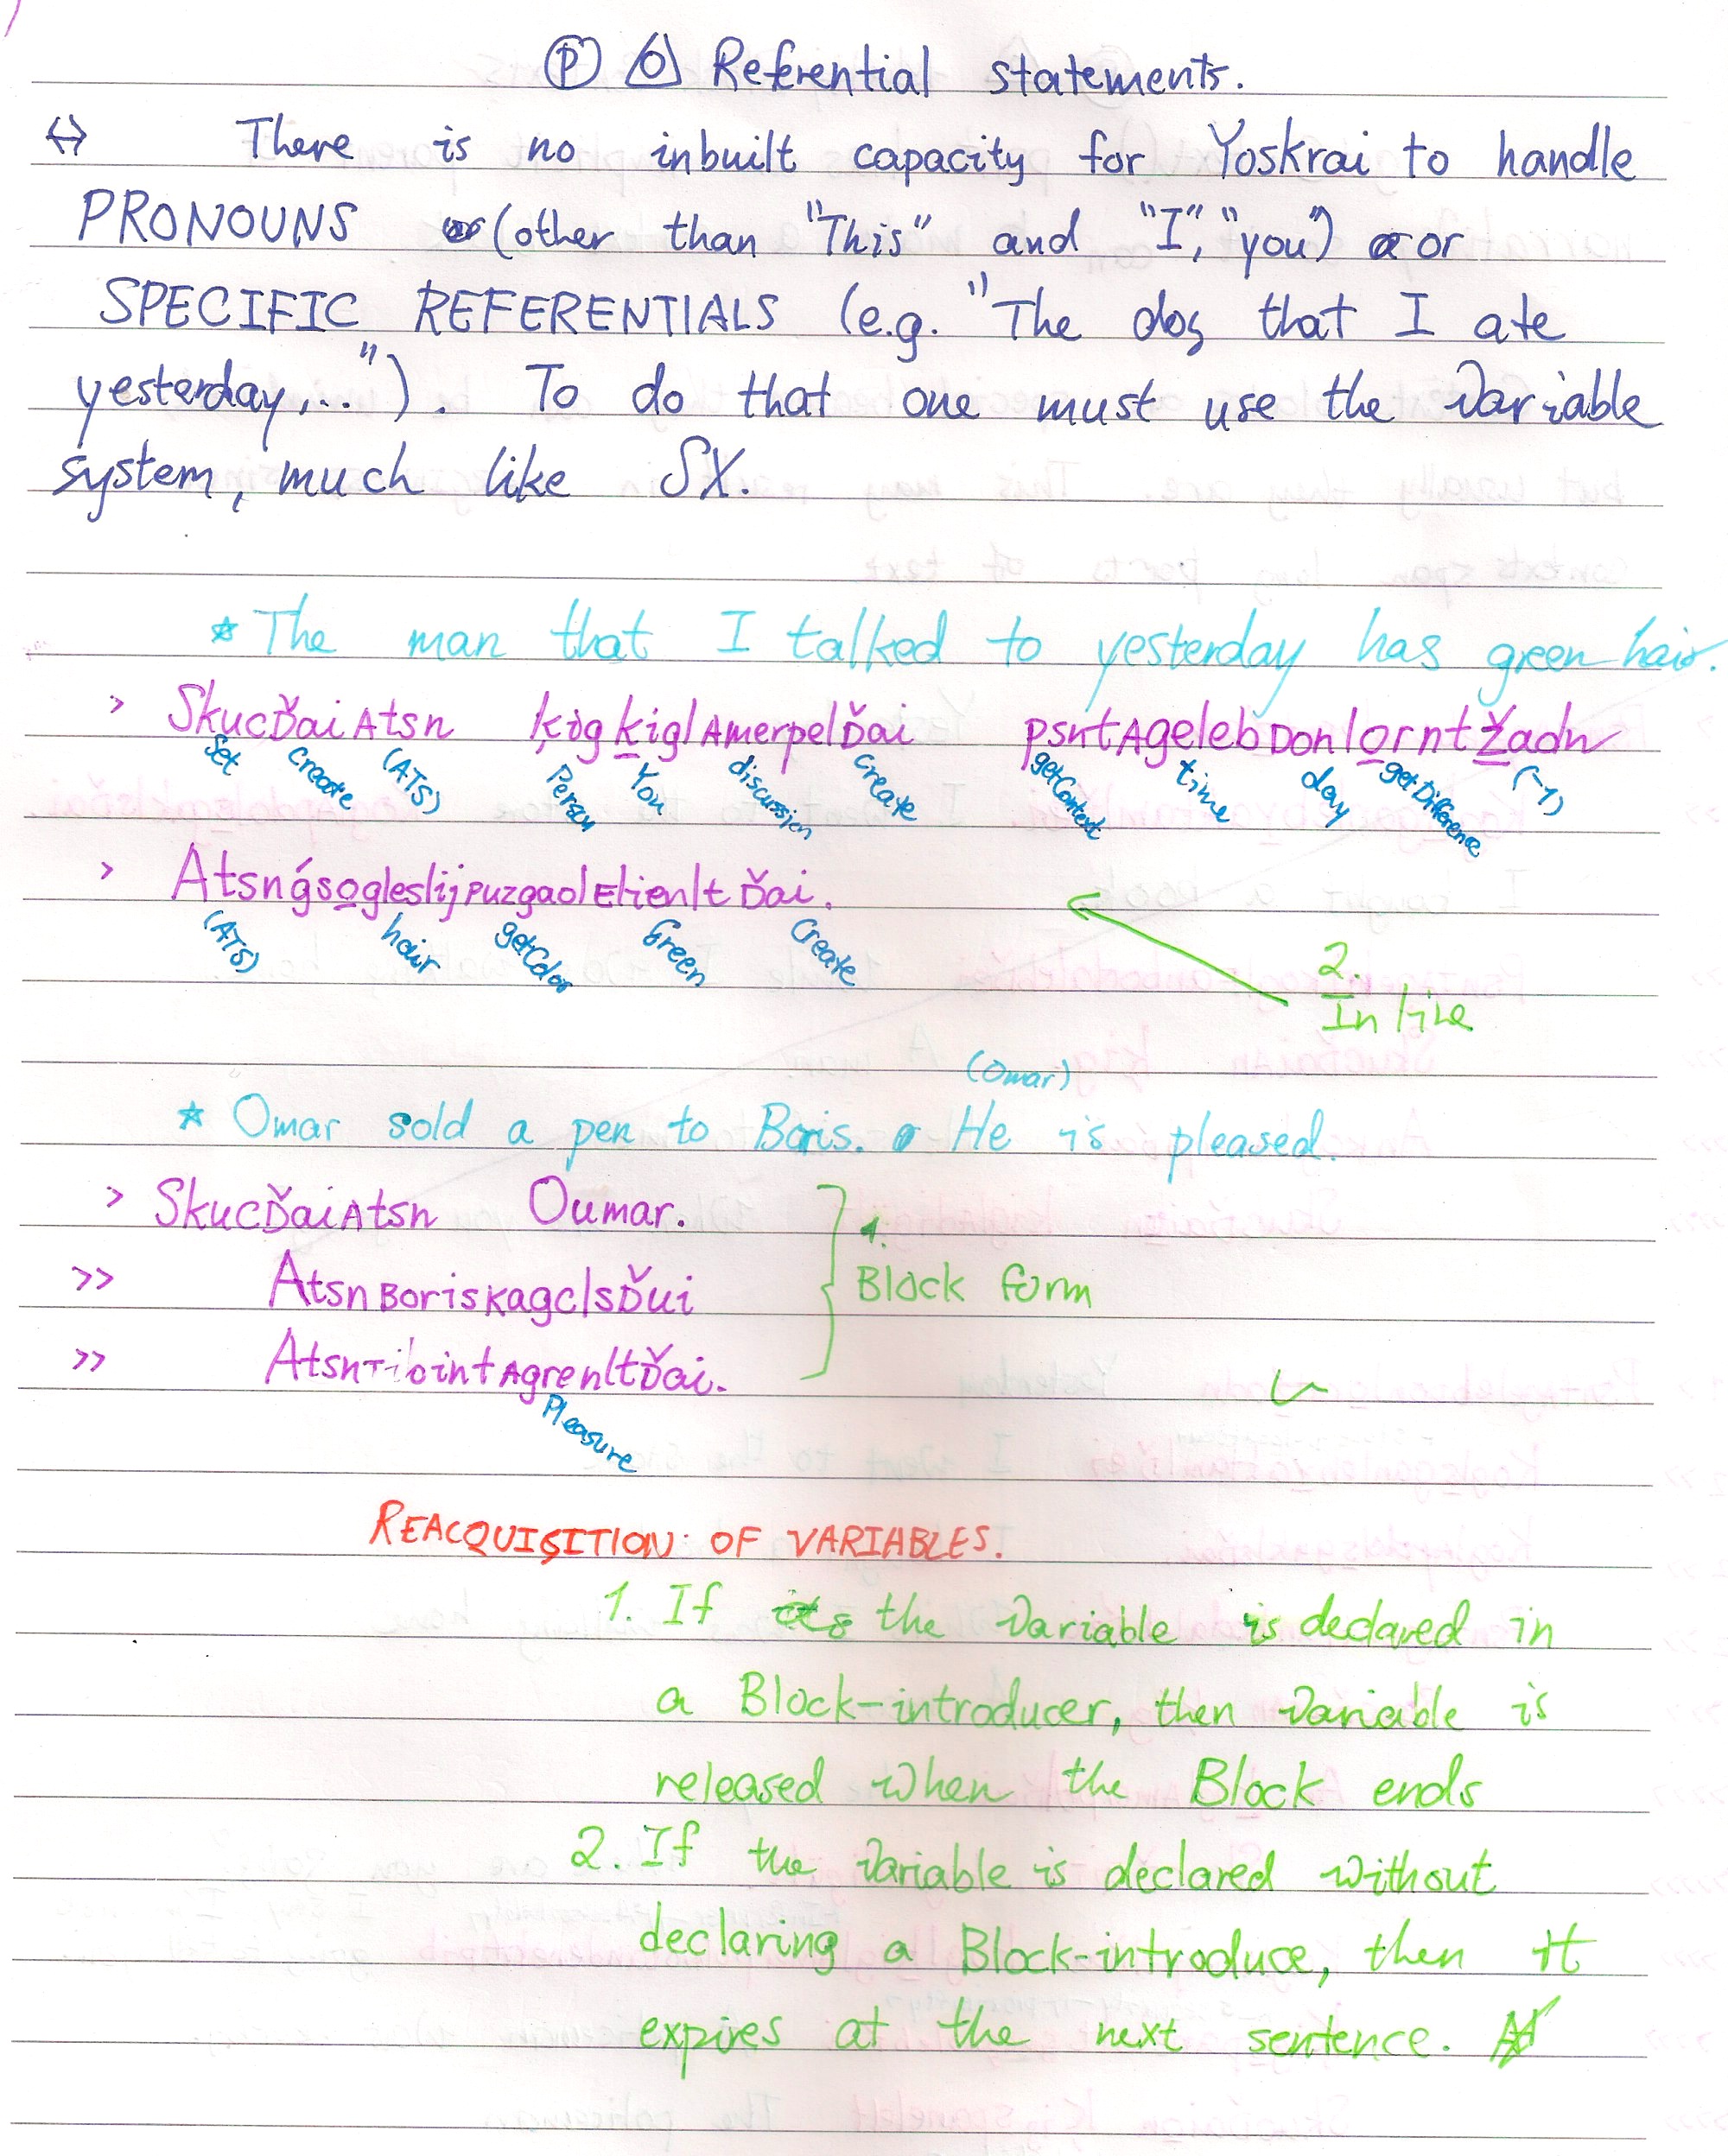 Ⓟ Referential statements.
↔ There is no inbuilt capacity for Yoskrai to handle
PRONOUNS (other than "This" and "I", "you") or
SPECIFIC REFERENTIALS (e.g. "The dog that I ate
yesterday,..."). To do that one must use the variable
system, much like SX.
* The man that I talked to yesterday has green hair.
> SkucĎaiAtsn kigkiglAmerpelĎai psntAgelebDonlorntŽadn
Set Create (ATS) Person You discussion create getContext time day getDifference (-1)
> AtsnǵsogleslijpuzgaolElienltĎai.
(ATS) hair getColor Green Create
2.
In line
(Omar)
* Omar sold a pen to Boris. He is pleased.
> SkucĎaiAtsn Oumar.
>> AtsnBoriskagclsĎui
>> AtsnTibintAgrenltĎai.
Pleasure
1.
Block form
REACQUISITION OF VARIABLES.
1. If the variable is declared in
a Block-introducer, then variable is
released when the Block ends
2. If the variable is declared without
declaring a Block-introduce, then it
expires at the next sentence.